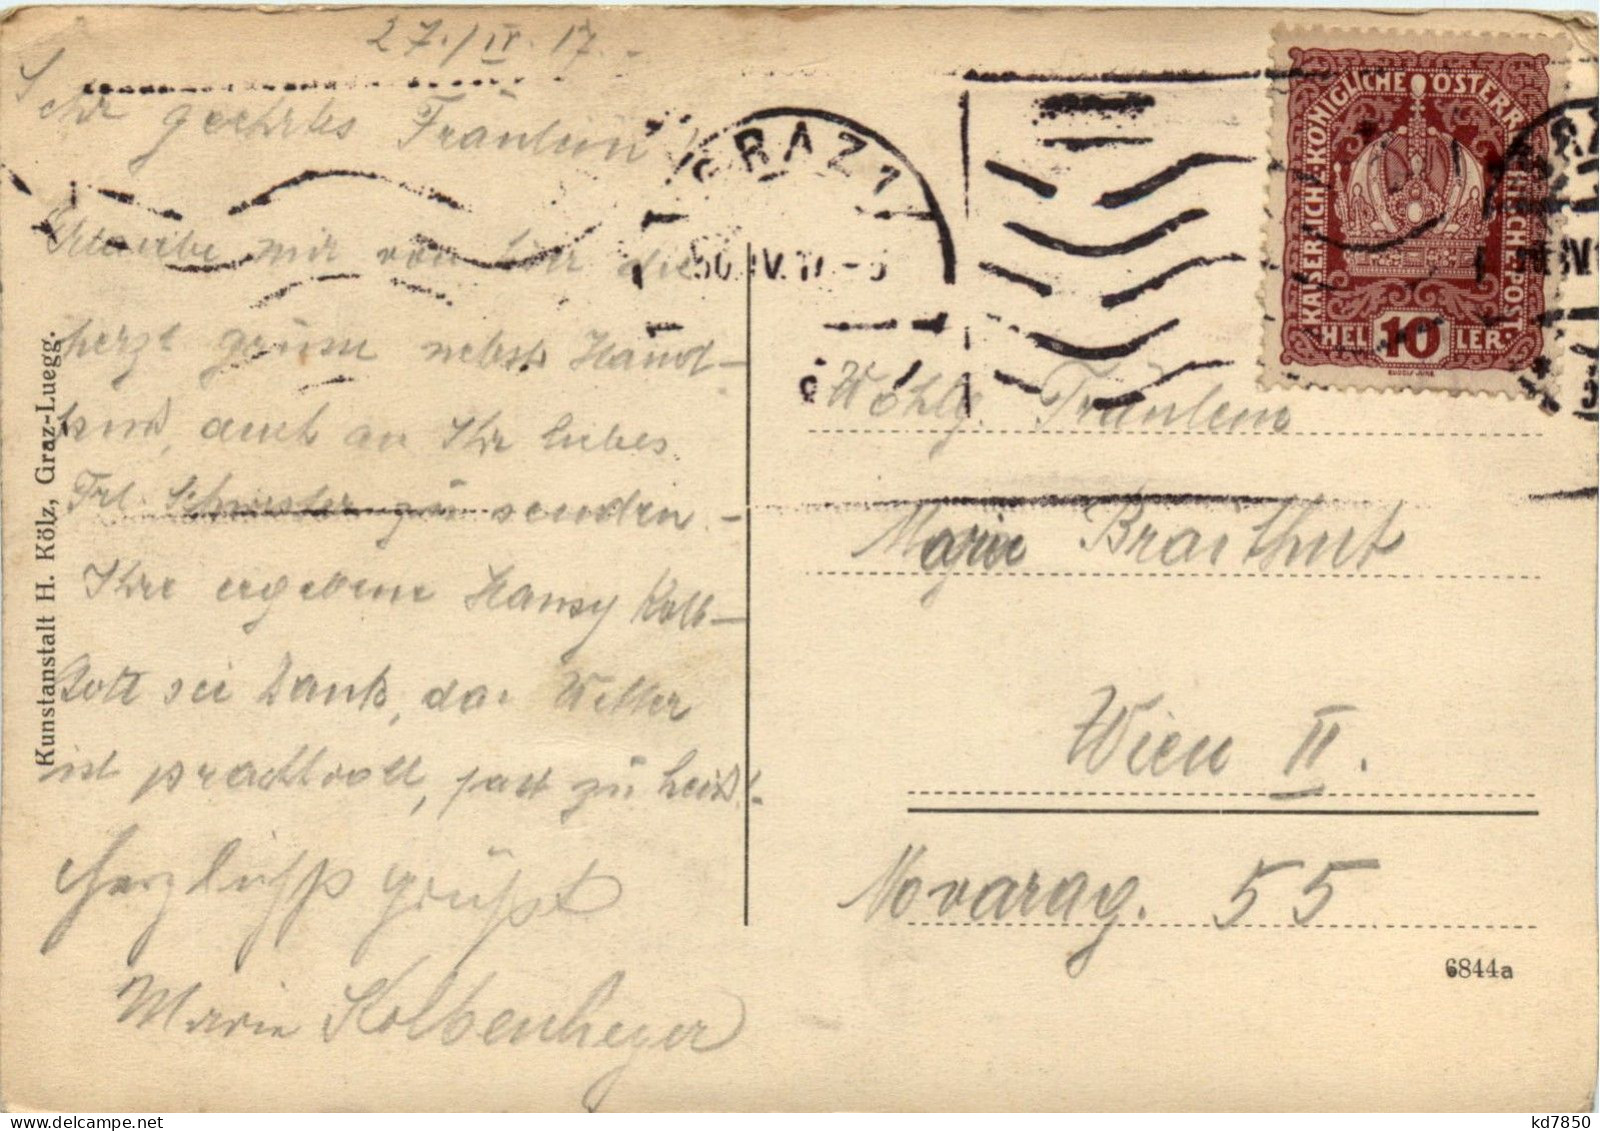 27./IV. 17.-
Sehr geehrtes Fräulein!
Erlaube mir von hier die
herzl. grüsse nebst Hand-
kuss, auch an Ihr liebes
Frl. Schwester zu senden -
Ihre ergebene Hansy Kolb-
Gott sei Dank, das Wetter
ist prachtvoll, fast zu heiss!
Herzlichst grüßt
Marie Kolbenheyer
Kunstanstalt H. Kölz, Graz-Luegg.
GRAZ 1
IV. 17
KAISERLICHE KÖNIGLICHE ÖSTERREICHISCHE POST
HELLER
10
Wohlg. Fräulein
Marie Braithut
Wien II.
Novarag. 55
6844a
kd7850